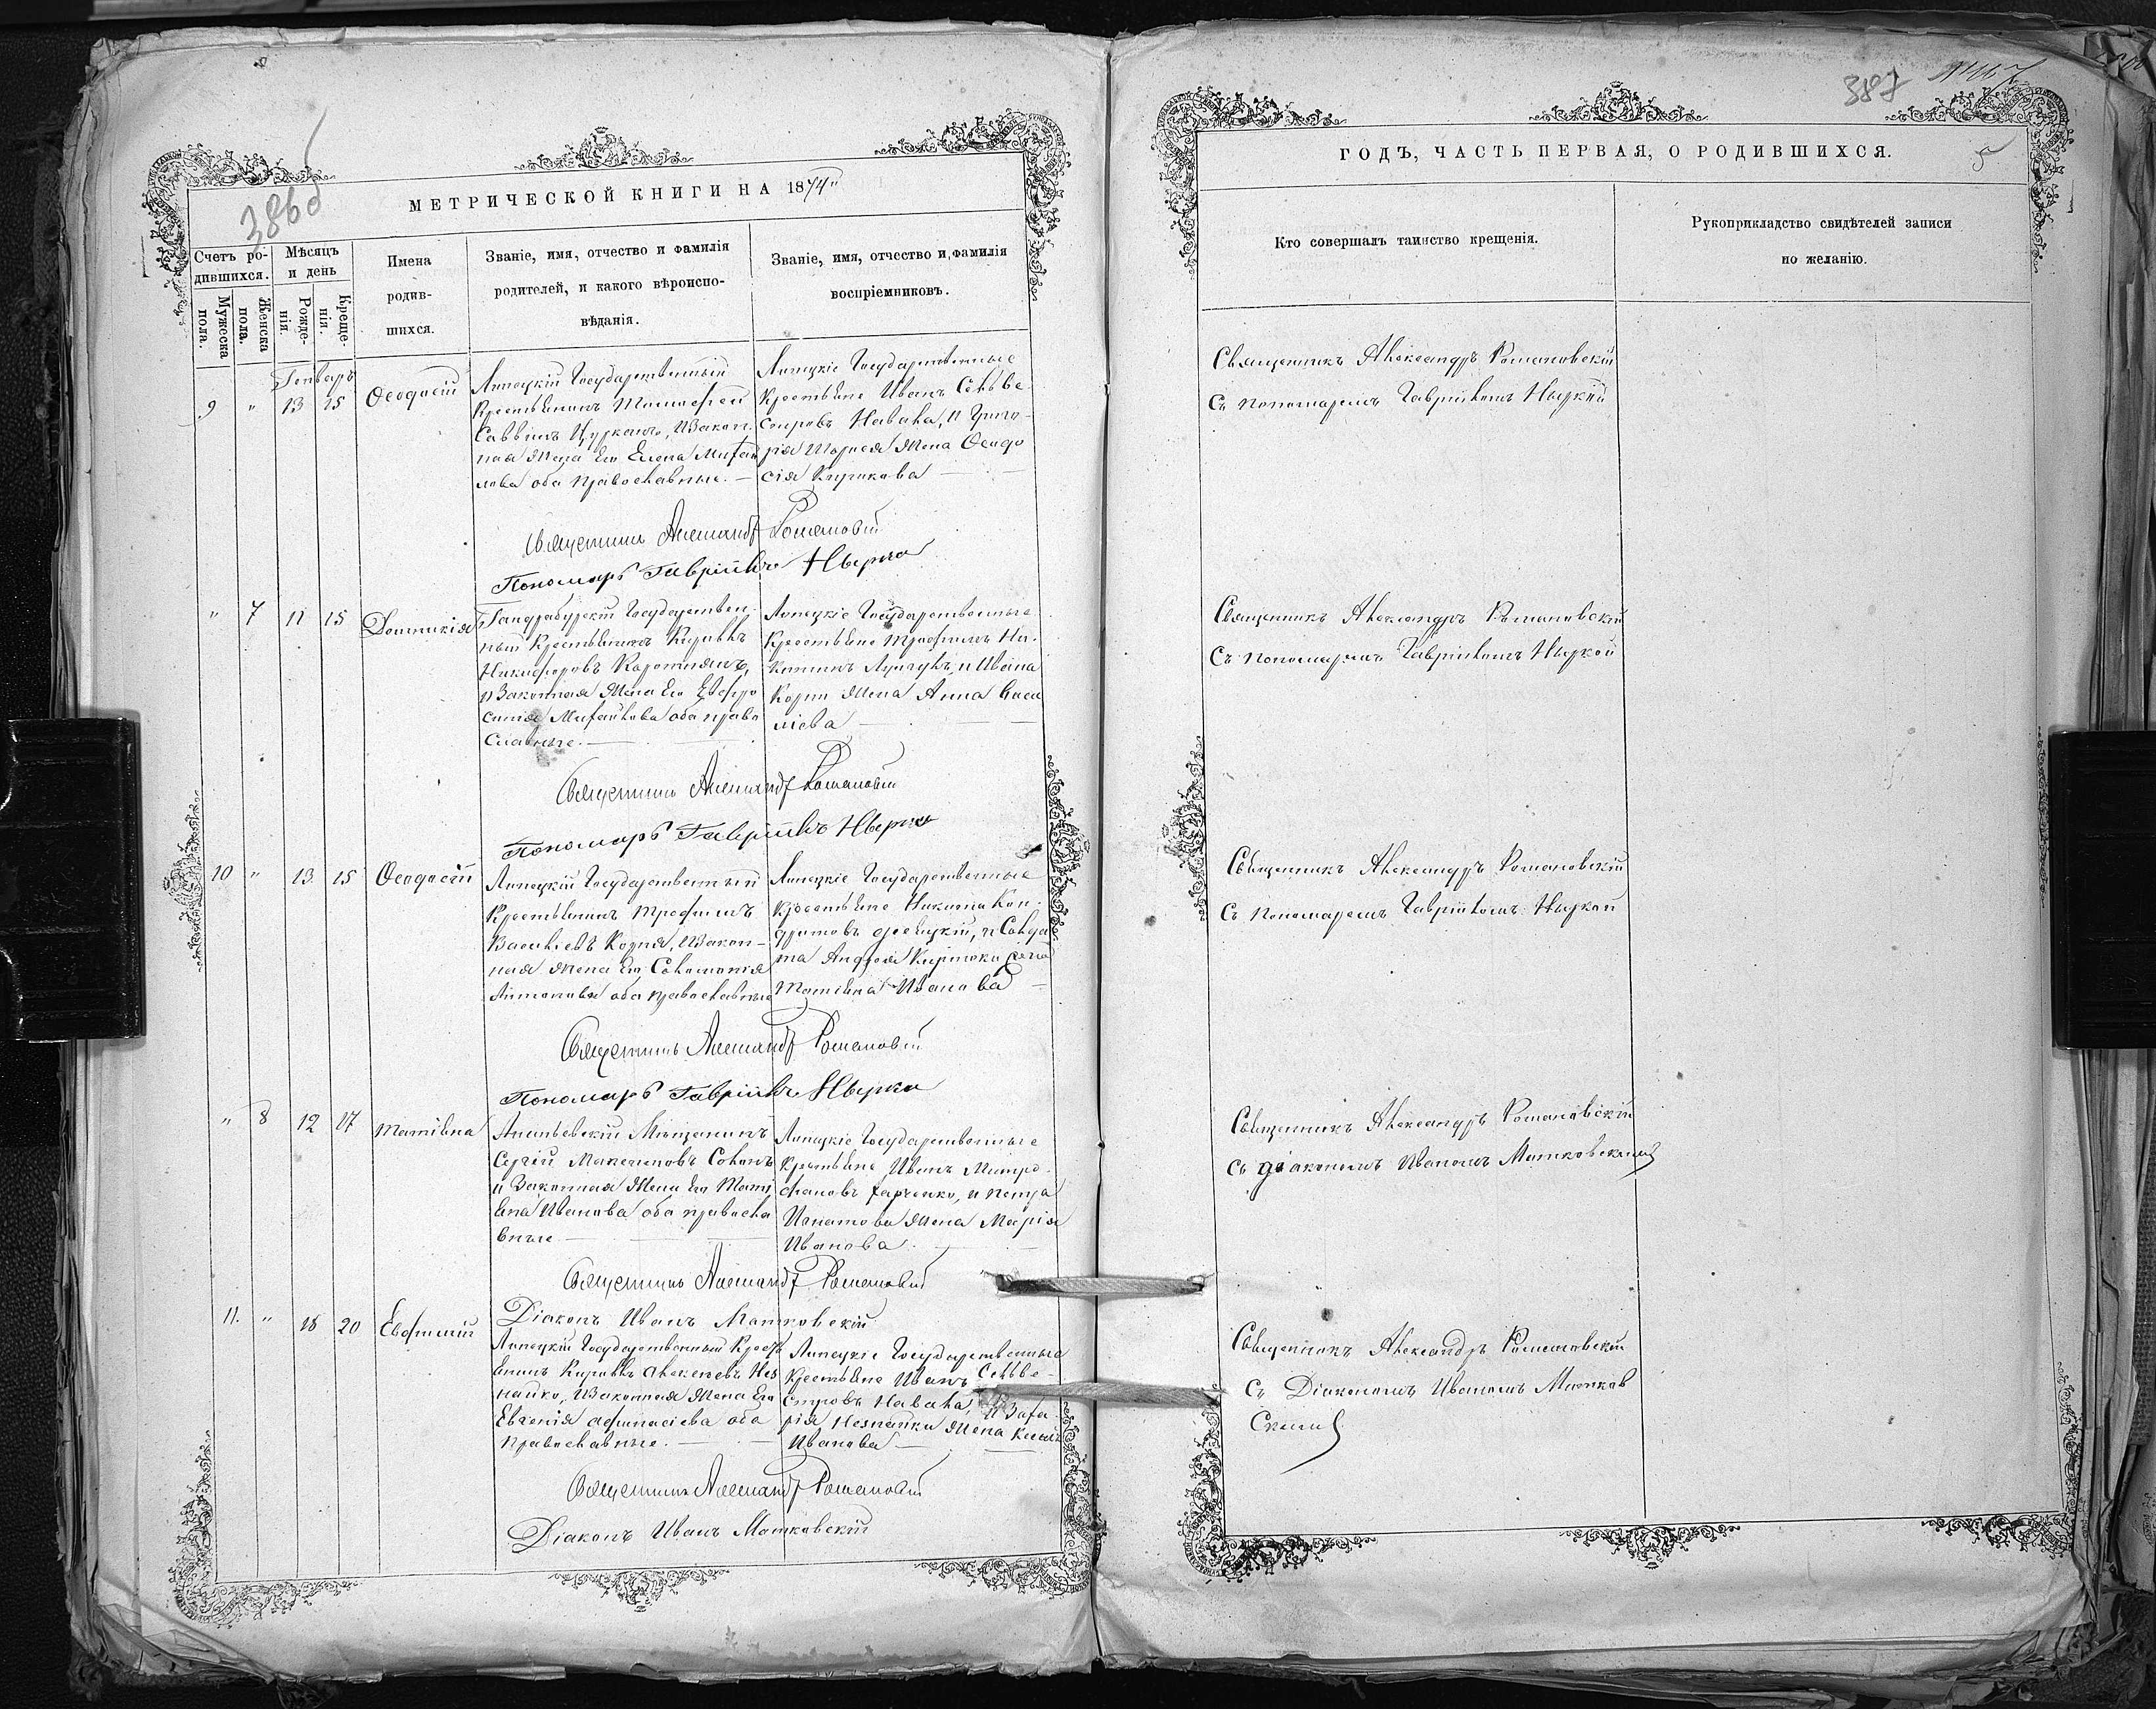 386 об
МЕТРИЧЕСКОЙ КНИГИ НА 1874
Счетъ ро-
дившихся.
Мужеска
пола.
Женска
пола.
Мѣсяцъ
и день
Рожде-
нія.
Креще-
нія.
Имена
родив-
шихся.
Званіе, имя, отчество и фамилія
родителей, и какого вѣроиспо-
вѣданія.
Званіе, имя, отчество и фамилія
воспріемниковъ.
Генварь
9 " 13 15 Ѳеодосій
Липецкій Государственный
Крестьянинъ Тимофей
Саввинъ Цуркань, и закон-
ная жена его Елена Михай
лова оба православные.
Липецкіе Государственные
Крестьяне Иванъ Сельве-
стровъ Навака, и Григо-
рія жена Ѳеодо
сія Кирикова
Священникъ Александръ Романовскій
Пономарь Гавріилъ Нырко
" 7 11 15 Домникія
Гандрабурскій Государствен-
ный Крестьянинъ Кириллъ
Никифоровъ Каротнянъ,
и Законная Жена Его Евфро
синія Михайлова оба право
славные.
Липецкіе Государственные
Крестьяне Трофимъ Ни-
китинъ и Ивана
Корни Жена Анна Васи
ліева
Священникъ Александръ Романовскій
Пономарь Гавріилъ Нырко
10 " 13 15 Ѳеодосій
Липецкій Государственный
Крестьянинъ Трофимъ
Васильевъ Корня, и Закон-
ная Жена Его Соломонія
Антонова оба православные
Липецкіе Государственные
Крестьяне Никита Кон-
дратовъ и Солда
та Андрея жена
Татіана Иванова
Священникъ Александръ Романовскій
Пономарь Гавріилъ Нырко
" 8 12 17 Татіана
Ананьевскій Мѣщанинъ
Сергій Максимовъ Соконъ
и Законная Жена Его Тать
яна Иванова оба правосла
вные
Липецкіе Государственные
Крестьяне Иванъ Митро-
фановъ Харченко, и Петра
Игнатова Жена Марія
Иванова.
Священникъ Александръ Романовскій
Діаконъ Иванъ Матковскій
11. " 18 20 Евфимій
Липецкій Государственный Крест
янинъ Кириллъ Алексѣевъ Нез
найко, и Законная Жена Его
Евгенія Афанасіева оба
Православные.
Липецкіе Государственные
Крестьяне Иванъ Сельве-
стровъ Навака, и Заха-
рія Незнайки Жена
Иванова
Священникъ Александръ Романовскій
Діаконъ Иванъ Матковскій
387
ГОДЪ, ЧАСТЬ ПЕРВАЯ, О РОДИВШИХСЯ.
5
Кто совершалъ таинство крещенія.
Рукоприкладство свидѣтелей записи
по желанію.
Священникъ Александръ Романовскій
Съ Пономаремъ Гавріиломъ Ныркой
Священникъ Александръ Романовскій
Съ Пономаремъ Гавріиломъ Ныркой
Священникъ Александръ Романовскій
Съ Пономаремъ Гавріиломъ Ныркой
Священникъ Александръ Романовскій
Съ Діакономъ Иваномъ Матковскимъ
Священникъ Александръ Романовскій
Съ Діакономъ Иваномъ Матков
Скимъ